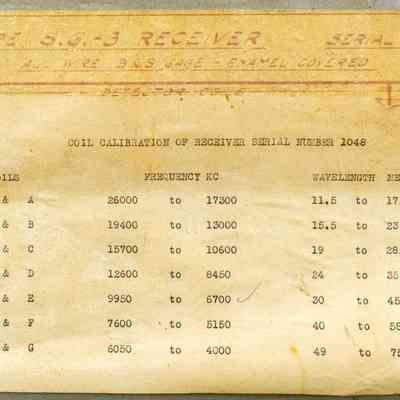 PE S.G.-3 RECEIVER SERIAL
ALL WIRE B&S GAGE - ENAMEL COVERED
DETECTOR COILS
COIL CALIBRATION OF RECEIVER SERIAL NUMBER 1048
OILS FREQUENCY KC WAVELENGTH ME
& A 26000 to 17300 11.5 to 17
& B 19400 to 13000 15.5 to 23
& C 15700 to 10600 19 to 28
& D 12600 to 8450 24 to 35
& E 9950 to 6700 30 to 45
& F 7600 to 5150 40 to 58
& G 6050 to 4000 49 to 75